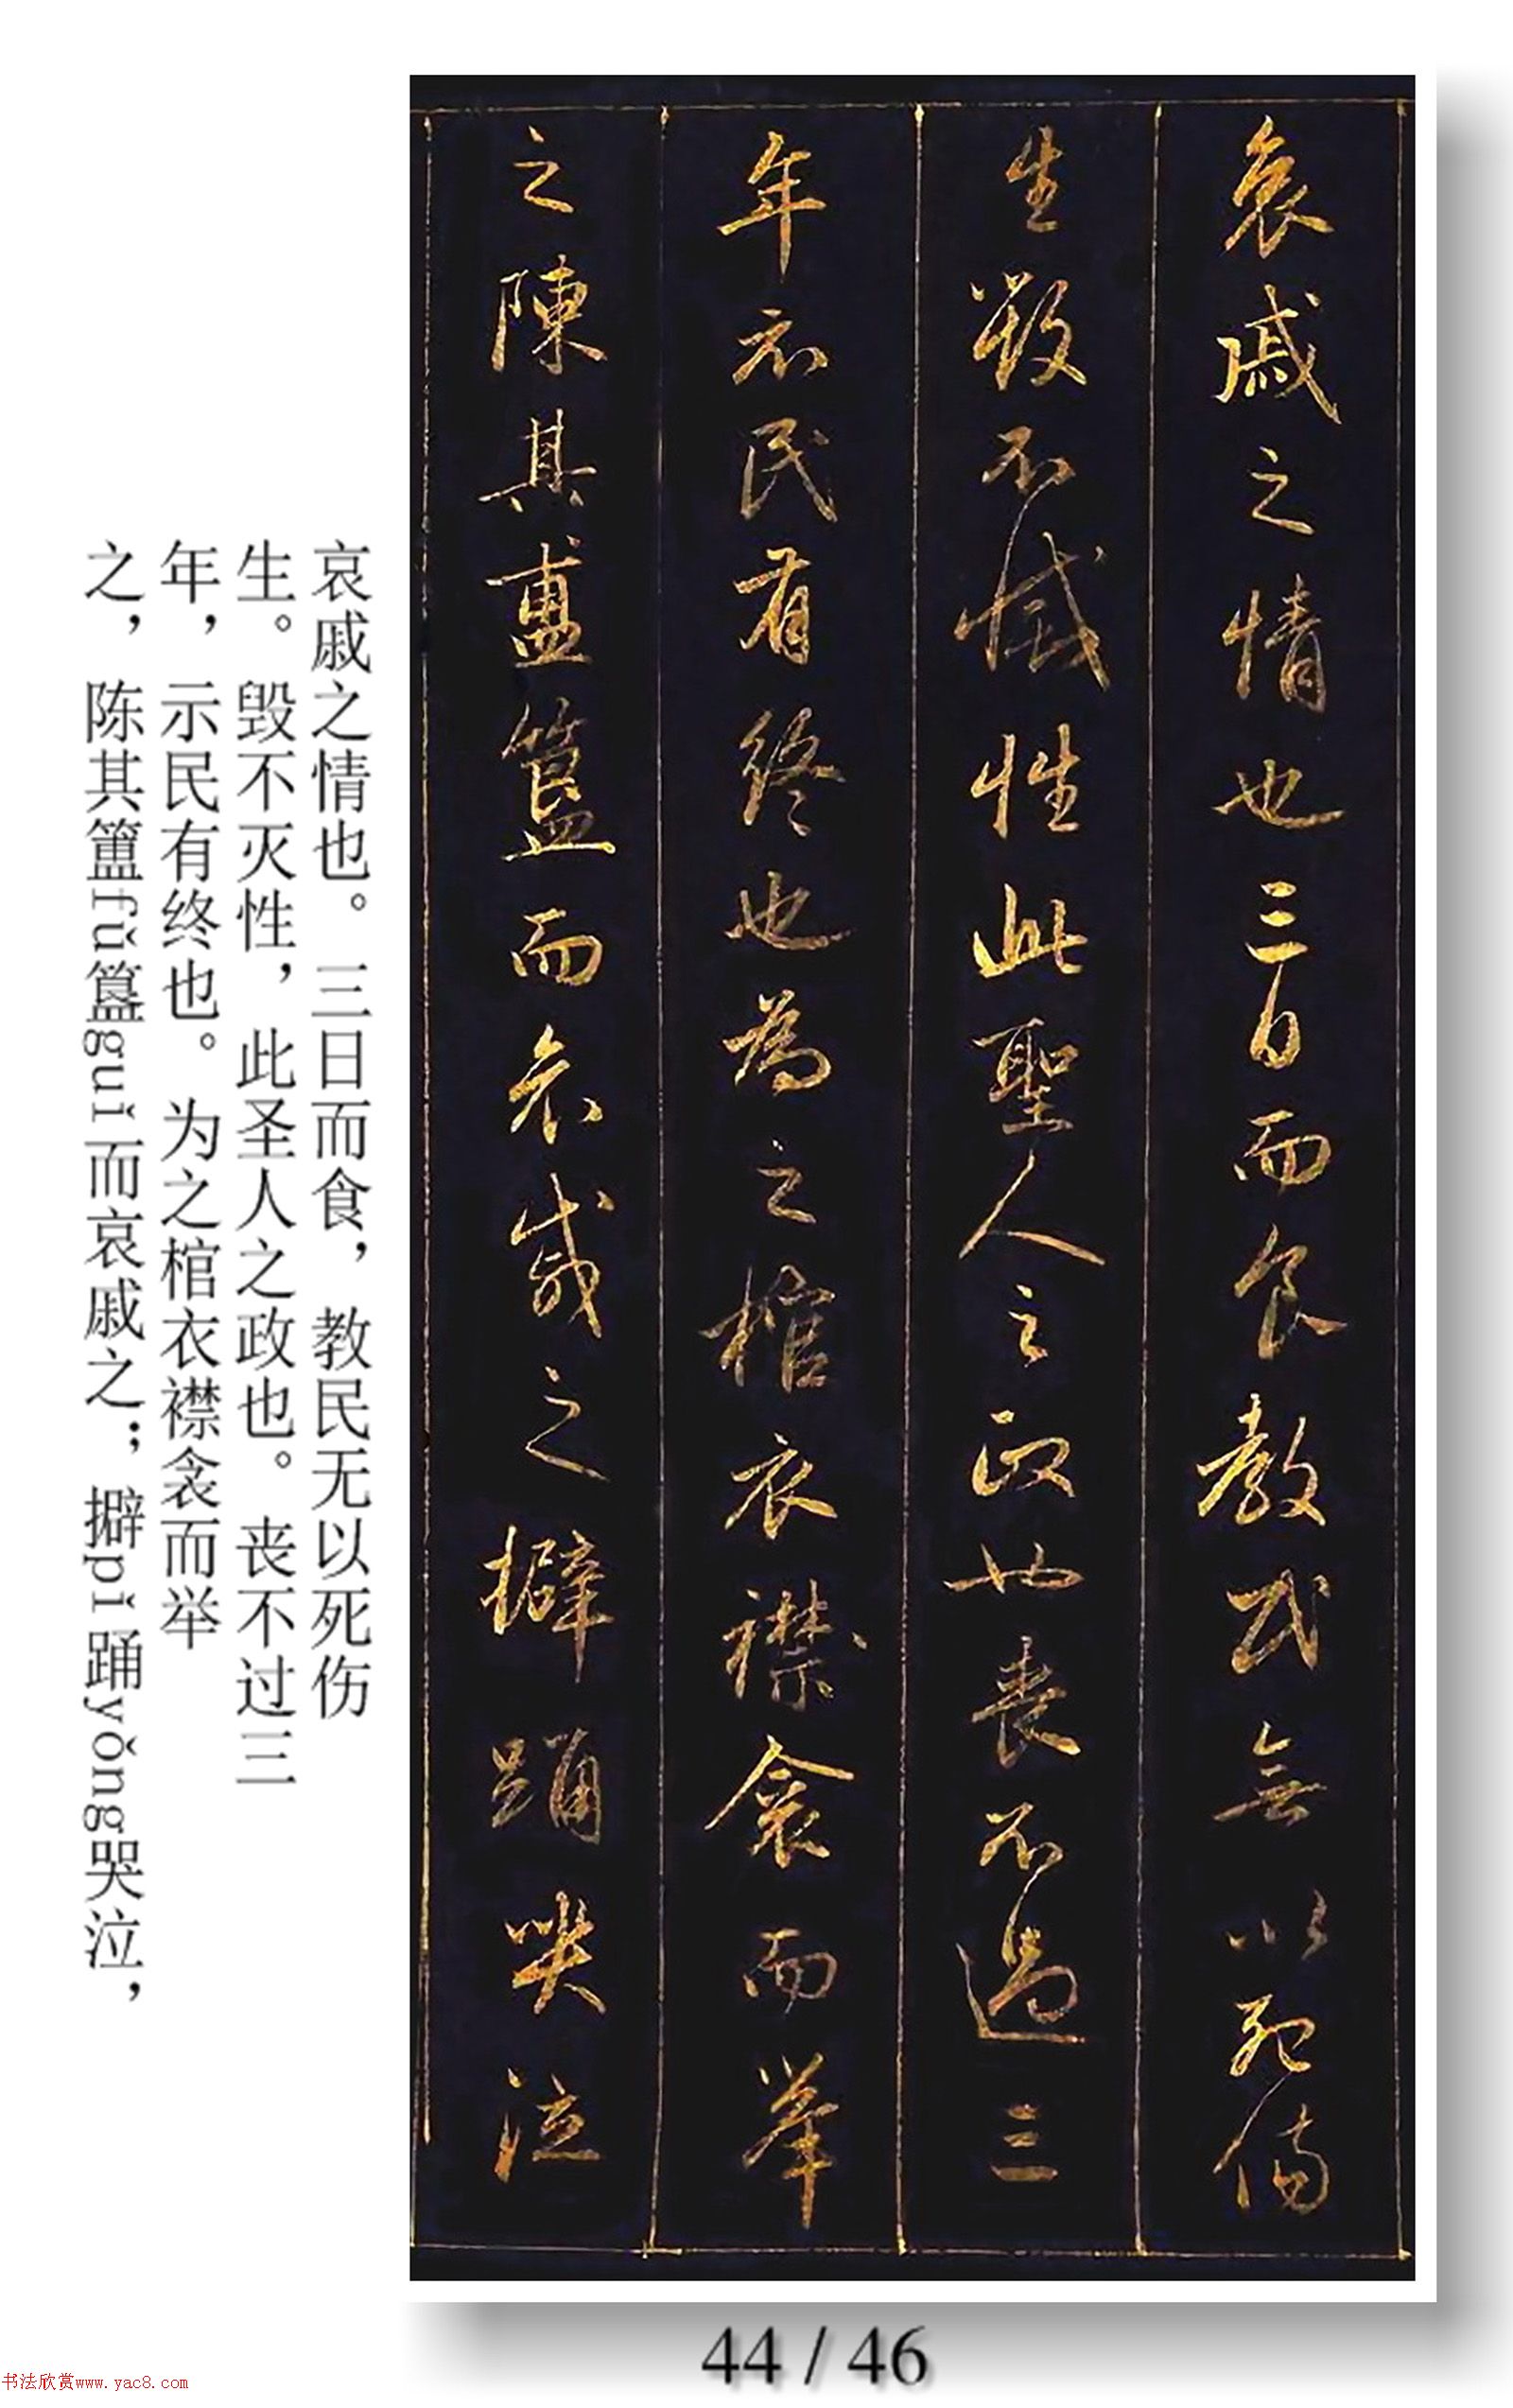 哀戚之情也三日而食教民無以死傷
生毀不滅性此聖人之政也喪不過三
年示民有终也為之棺衣襟衾而舉
之陳其簠簋而哀戚之擗踊哭泣
哀戚之情也。三日而食，教民无以死伤
生。毁不灭性，此圣人之政也。丧不过三
年，示民有终也。为之棺衣襟衾而举
之，陈其簠fǔ簋guǐ而哀戚之；擗pǐ踊yǒng哭泣，
44 / 46
书法欣赏www.yac8.com